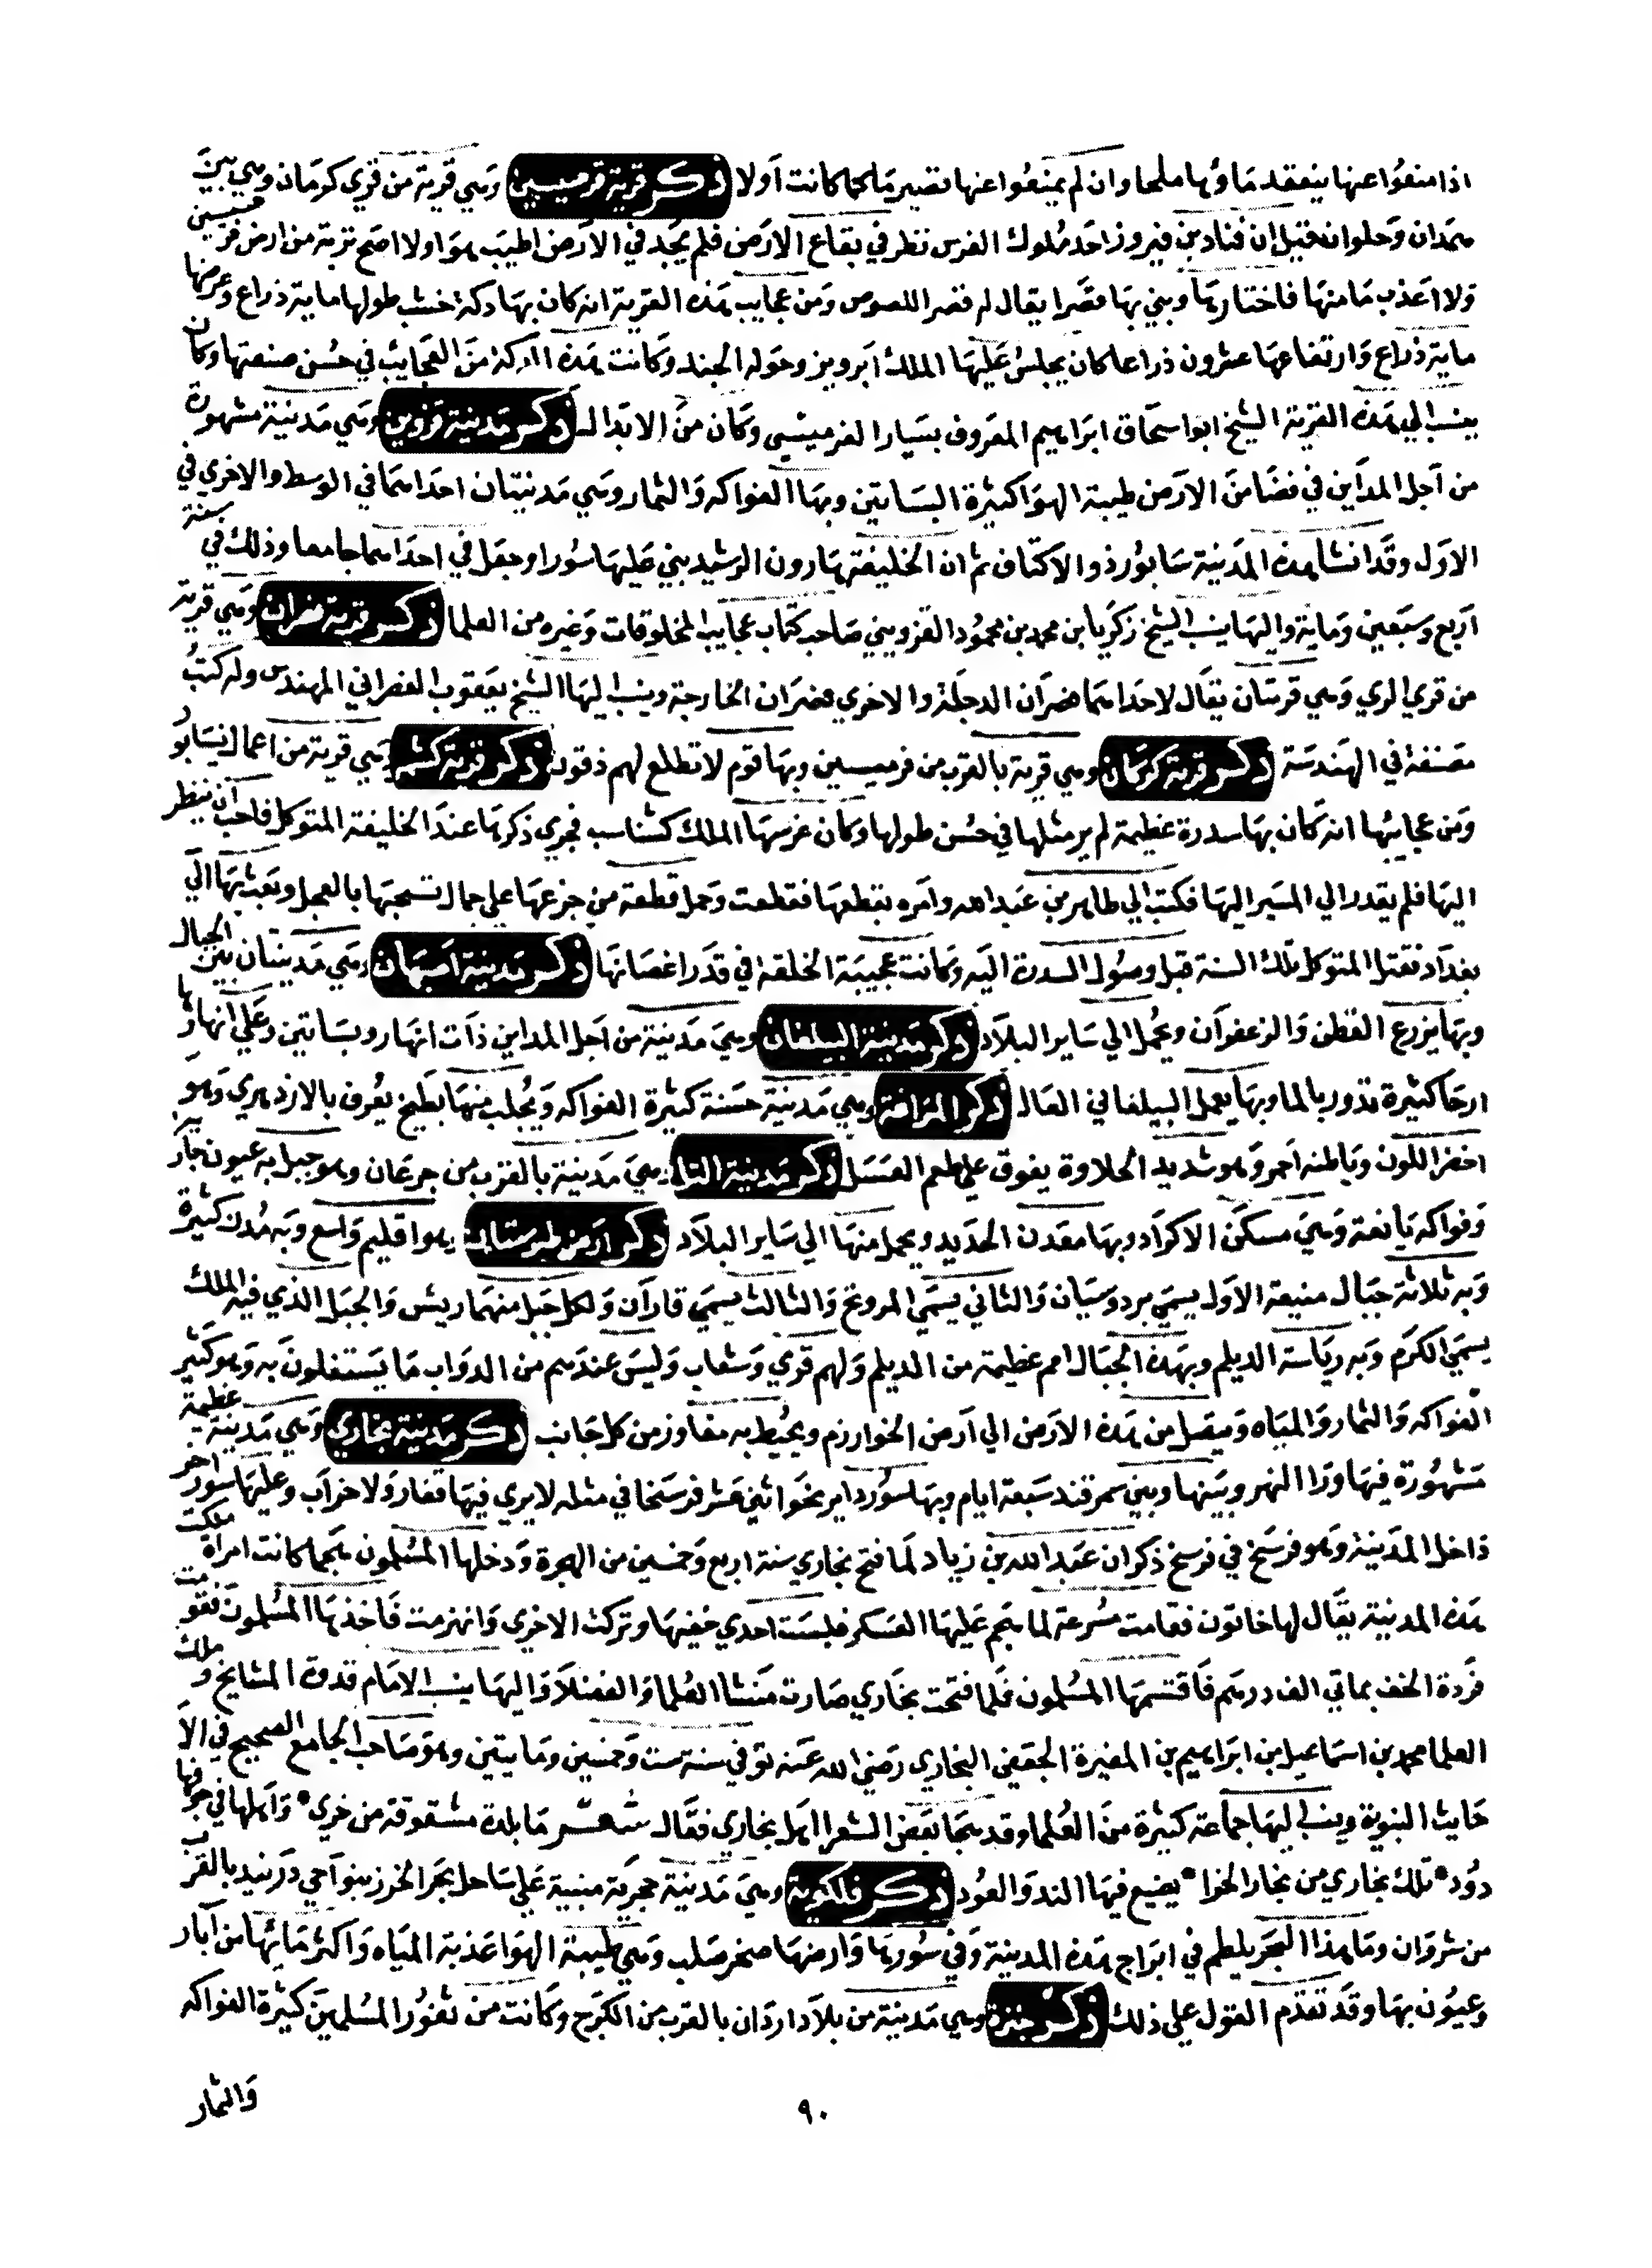 اذا منعوا عنها ينعقد ماؤها ملحا وان لم يمنعوا عنها تصير ماء كما كانت اولا ذكر قرية قرميسين وهي قرية من قري كرمان وهي بين
همدان وحلوان قيل ان قناد بن فيروز احد ملوك الفرس نظر في بقاع الارض فلم يجد في الارض اطيب هوا ولا اصح تربة من ارض قرميسين
ولا اعذب ما منها فاختارها وبني بها قصرا يقال له قصر اللصوص ومن عجايب هذه القرية انه كان بها دكة خشب طولها ماية ذراع وعرضها
ماية ذراع وارتفاعها عشرون ذراعا كان يجلس عليها الملك ابرويز وحوله الجند وكانت هذه الدكة من العجايب في حسن صنعتها وكان
ينسب الي هذه القرية الشيخ ابو اسحاق ابراهيم المعروف بسيار القرميسي وكان من الابدال ذكر مدينة قزوين وهي مدينة مشهورة
من اجل المداين في فضا من الارض طيبة الهوا كثيرة البساتين وبها الفواكه والثمار وهي مدينتان احداهما في الوسط والاخري في
الاول وقد انشا هذه المدينة سابور ذو الاكتاف ثم ان الخليفة هارون الرشيد بني عليها سورا وجعل في احداهما جامعا وذلك في سنة
اربع وسبعين وماية واليها ينسب الشيخ زكريا بن محمد بن محمود القزويني صاحب كتاب عجايب المخلوقات وغيره من العلما ذكر قرية قصران وهي قرية
من قري الري وهي قرمتان يقال لاحداهما قصران الدجلة والاخري قصران الخارجة وينسب اليها الشيخ يعقوب القصراني المهندس وله كتب
مصنفة في الهندسة ذكر قرية كرمان وهي قرية بالقرب من قرميسين وبها قوم لا تطلع لهم ذقون ذكر قرية كشم وهي قرية من اعمال نيسابور
ومن عجايبها انه كان بها سدرة عظيمة لم ير مثلها في حسن طولها وكان غرسها الملك كشتاسب فجري ذكرها عند الخليفة المتوكل فاحب ان ينظر
اليها فلم يقدر الي المسير اليها فكتب الي طاهر بن عبد الله وامره بقطعها فقطعت وحمل قطعة من جزعها علي جمال تسحبها بالعجل وبعث بها الي
بغداد فقتل المتوكل تلك السنة قبل وصول السدرة اليه وكانت عجيبة الخلقة في قدر اغصانها ذكر مدينة اصبهان وهي مدينتان بين الجبال
وبها يزرع القطن والزعفران ويحمل الي ساير البلاد ذكر مدينة البيلقان وهي مدينة من اجل المداين ذات انهار وبساتين وعلي انهارها
ارحا كثيرة تدور بالما وبها يعمل البيلقاني العال ذكر المراغة وهي مدينة حسنة كثيرة الفواكه ويجلب منها بطيخ يعرف بالازدهري وهو
اخضر اللون وباطنه احمر وهو شديد الحلاوة يفوق علي طعم العسل ذكر مدينة التل وهي مدينة بالقرب من جرعان وهو جبل به عيون جارية
وفواكه يانعة وهي مسكن الاكراد وبها معدن الحديد ويحمل منها الي ساير البلاد ذكر ارض طبرستان وهو اقليم واسع وبه مدن كثيرة
وبه ثلاثة جبال منيعة الاول يسمي بردوسيان والثاني يسمي المرونج والثالث يسمي قاران ولكل جبل منهما ريش والجبل الذي فيه الملك
يسمي الكرم وبه رياسة الديلم وبهذه الجبال امم عظيمة من الديلم ولهم قوي وشعاب وليس عندهم من الدواب ما يستغلون به وهو كثير
الفواكه والثمار والمياه ويتصل من هذه الارض الي ارض الخوارزم ويحيط به مفاوز من كل جانب ذكر مدينة بخاري وهي مدينة عظيمة
مشهورة فيها ورا النهر وبينها وبين سمرقند سبعة ايام وبها سور داير نحو اثني عشر فرسخا في مثله لا يري فيها قفار ولا خراب وعليها سور اخر
داخل المدينة وهو فرسخ في فرسخ ذكر ان عبد الله بن زياد لما فتح بخاري سنة اربع وخمسين من الهجرة ودخلها المسلمون هجما كانت امراة ملكت
هذه المدينة يقال لها خاتون فقامت مسرعة لما هجم عليها العسكر فلبست احدي خفيها وتركت الاخري وانهزمت فاخذها المسلمون فقومت
فردة الخف بماتي الف درهم فاقتسمها المسلمون فلما فتحت بخاري صارت منشا العلما والفضلا واليها ينسب الامام قدوة المشايخ وملك
العلما محمد بن اسماعيل بن ابراهيم بن المغيرة الجعفي البخاري رضي الله عنه توفي سنة ست وخمسين ومايتين وهو صاحب الجامع الصحيح في الا
حاديث النبوية وينسب اليها جماعة كثيرة من العلما وقد هجا بعض الشعرا اهل بخاري فقال شعر ما بلدة مشقوقة من خري * واهلها في جوفها
دود * تلك بخاري من بخار الخرا * يضيع فيها الند والعود ذكر وهي مدينة حجرية مبنية علي ساحل بحر الخزر بنواحي دربند بالقرب
من شروان وما هذا البحر يلطم في ابراج هذه المدينة وفي سورها وارضها صخر صلب وهي طيبة الهوا عذبة المياه واكثر مائها من آبار
وعيون بها وقد تقدم القول علي ذلك ذكر جنزة وهي مدينة من بلاد اردان بالقرب من الكرج وكانت من ثغور المسلمين كثيرة الفواكه
والثمار
٩٠